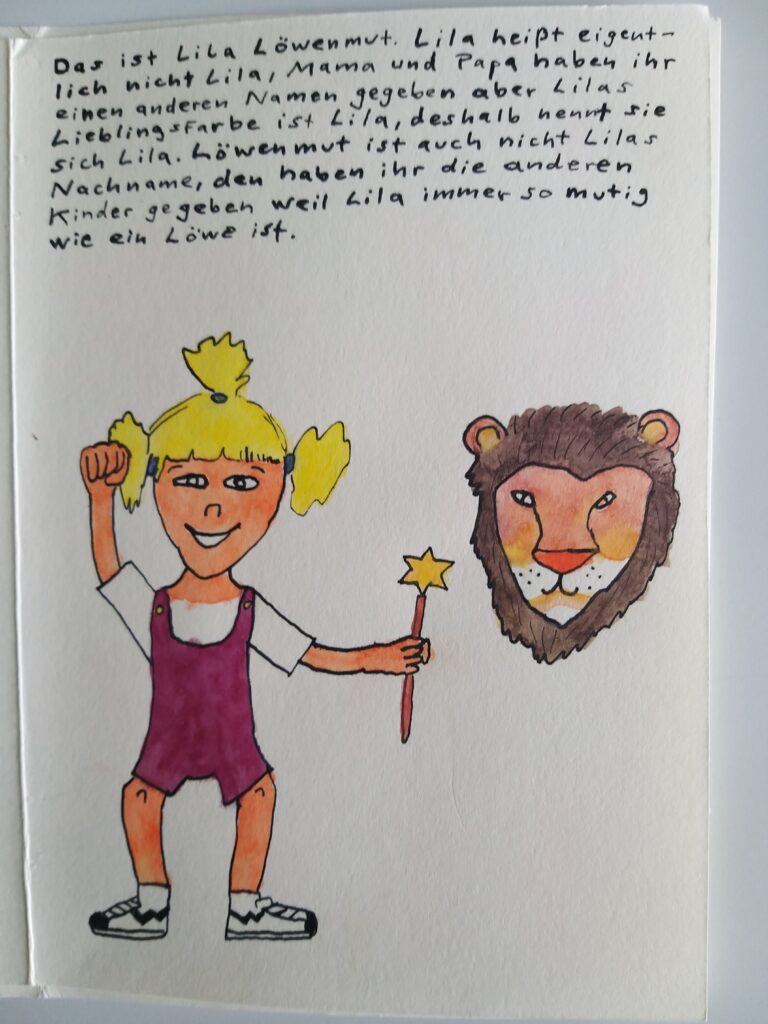 Das ist Lila Löwenmut. Lila heißt eigent-
lich nicht Lila, Mama und Papa haben ihr
einen anderen Namen gegeben aber Lilas
Lieblingsfarbe ist Lila, deshalb nennt sie
sich Lila. Löwenmut ist auch nicht Lilas
Nachname, den haben ihr die anderen
Kinder gegeben weil Lila immer so mutig
wie ein Löwe ist.